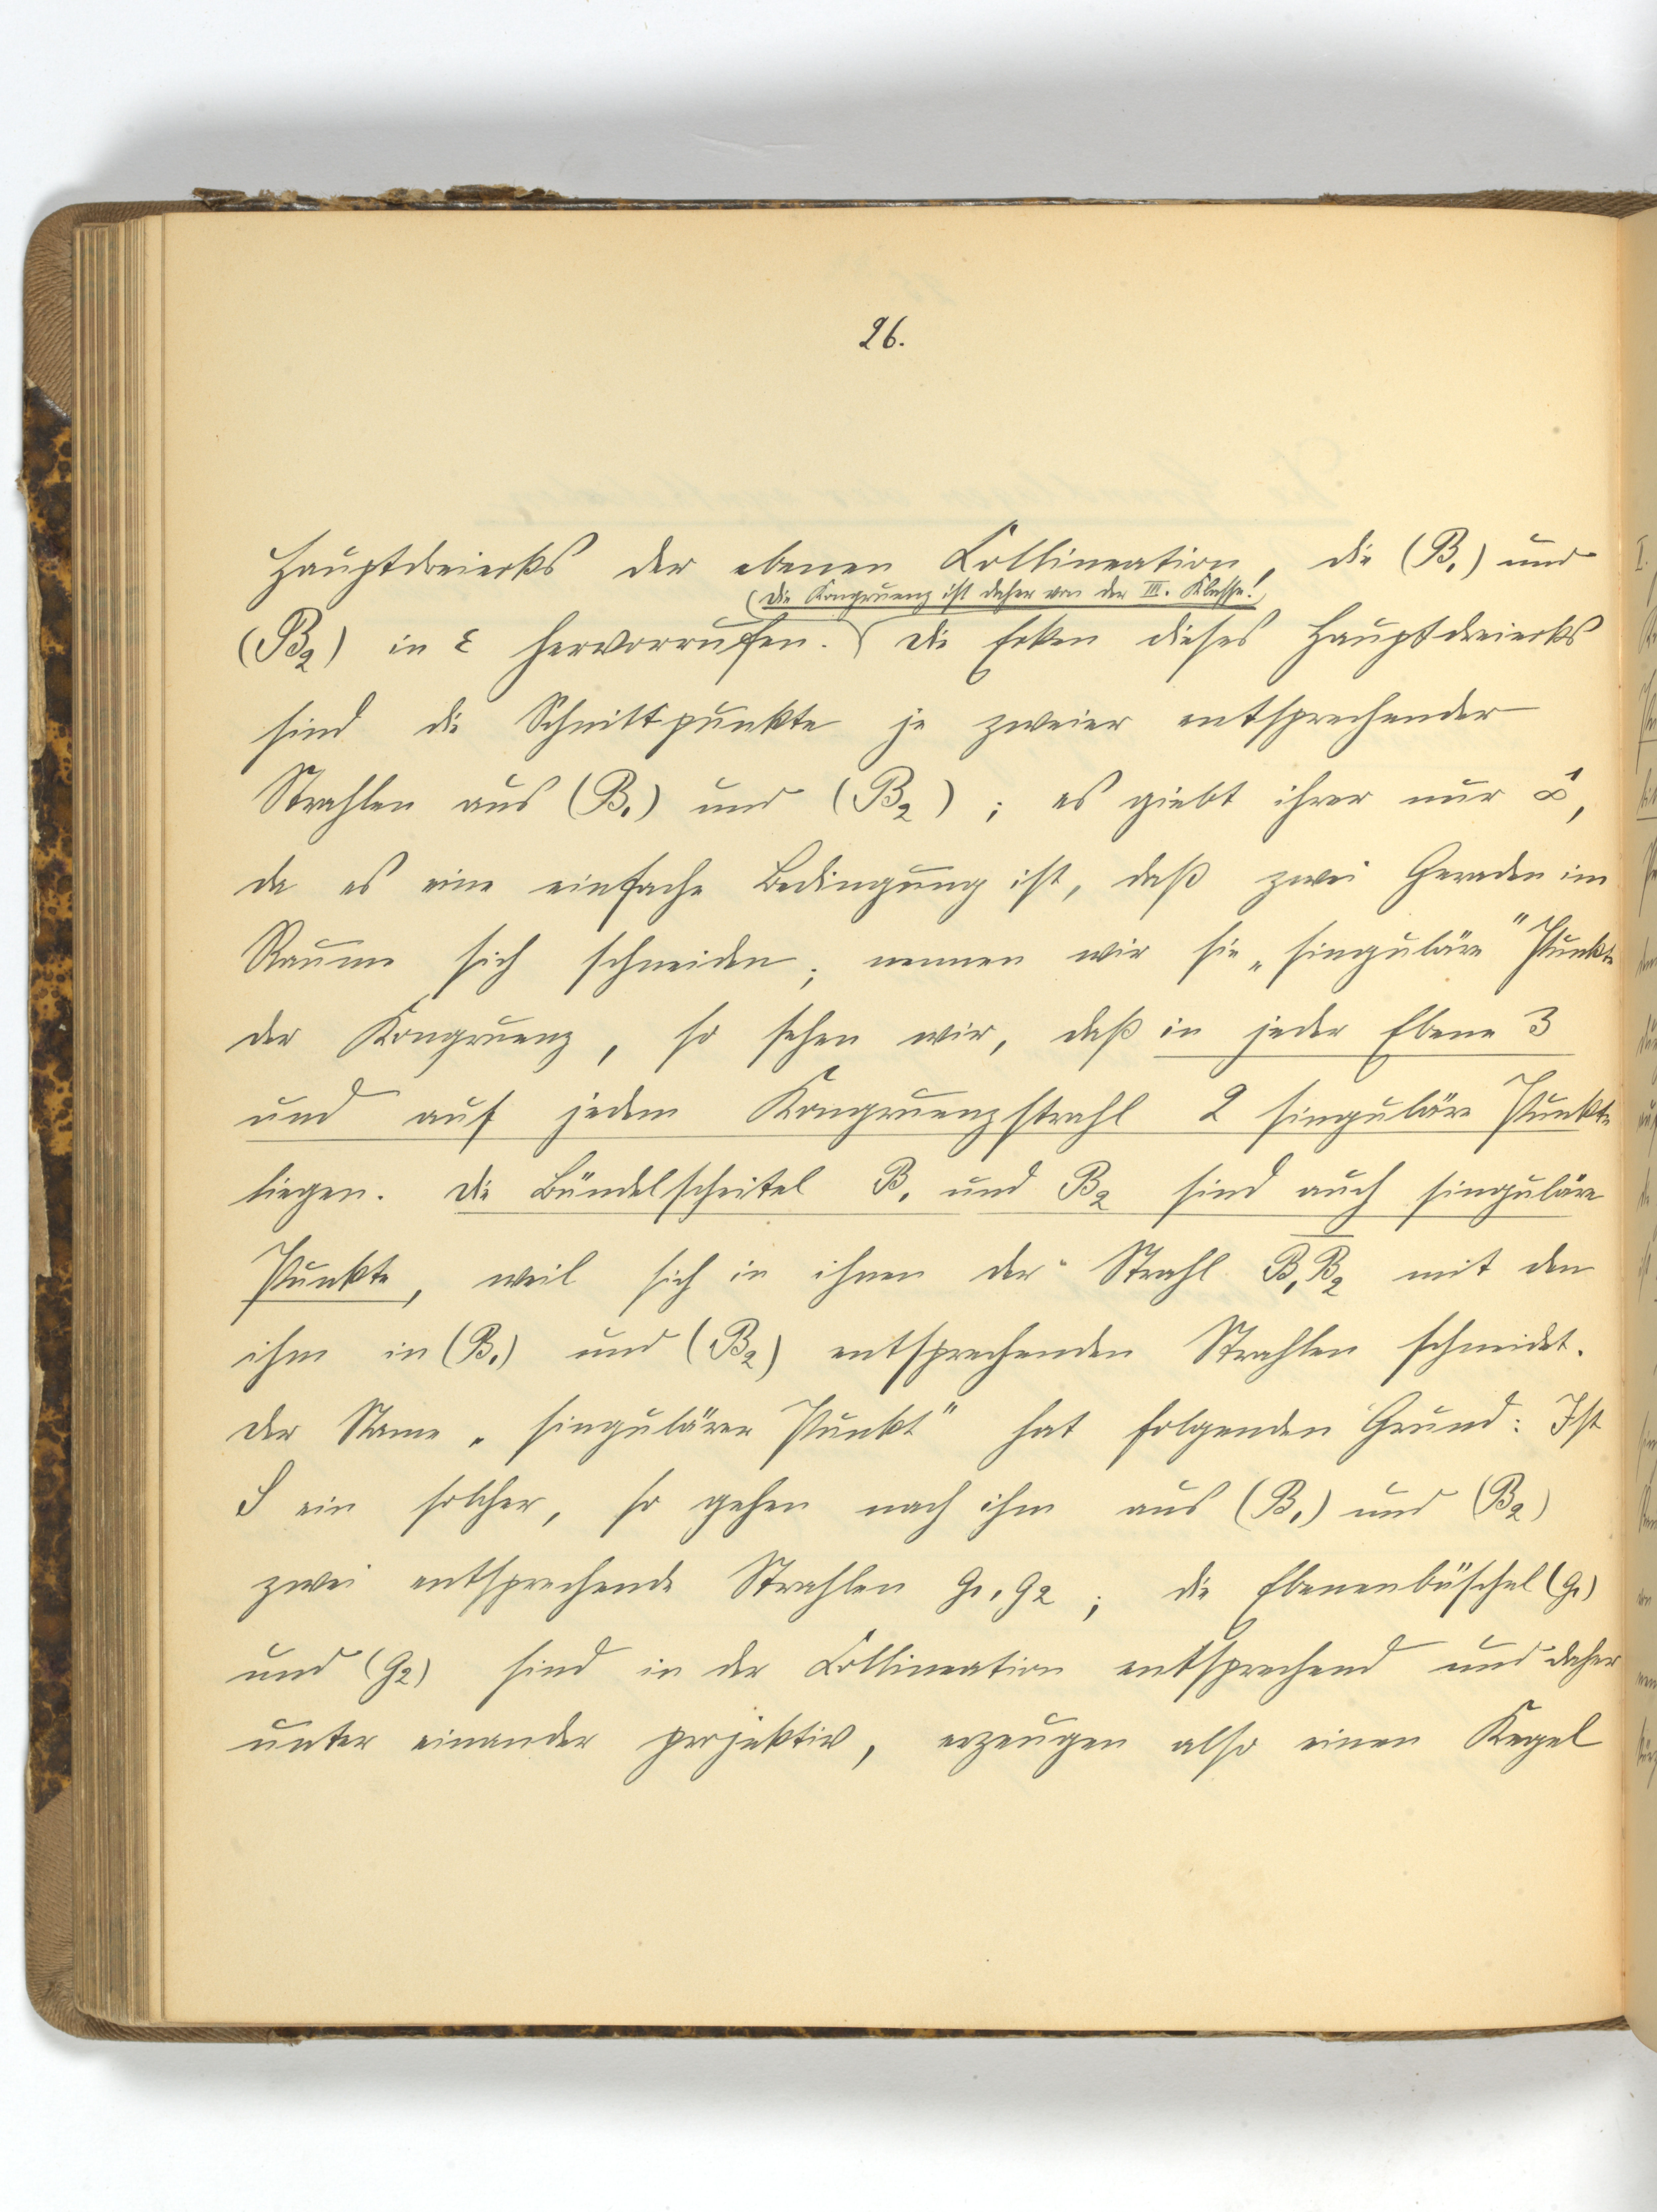 26.
Hauptdreiecks der ebenen Collineation, die (B₁) und
(Die Kongruenz ist daher von der III. Klasse!)
(B₂) in ε hervorrufen. Die Ecken dieses Hauptdreiecks
sind die Schnittpunkte je zweier entsprechender
Strahlen aus (B₁) und (B₂); es giebt ihrer nur ∞¹,
da es eine einfache Bedingung ist, daß zwei Geraden im
Raume sich schneiden; nennen wir sie „singuläre" Punkte
der Kongruenz, so sehen wir, daß in jeder Ebene 3
und auf jedem Kongruenzstrahl 2 singuläre Punkte
liegen. Die Bündelscheitel B₁ und B₂ sind auch singuläre
Punkte, weil sich in ihnen der Strahl B₁B₂ mit den
ihm in (B₁) und (B₂) entsprechenden Strahlen schneidet.
Der Name „singulärer Punkt" hat folgenden Grund: Ist
S ein solcher, so gehen nach ihm aus (B₁) und (B₂)
zwei entsprechende Strahlen g₁, g₂; die Ebenenbüschel (g₁)
und (g₂) sind in der Collineation entsprechend und daher
unter einander projektiv, erzeugen also einen Kegel